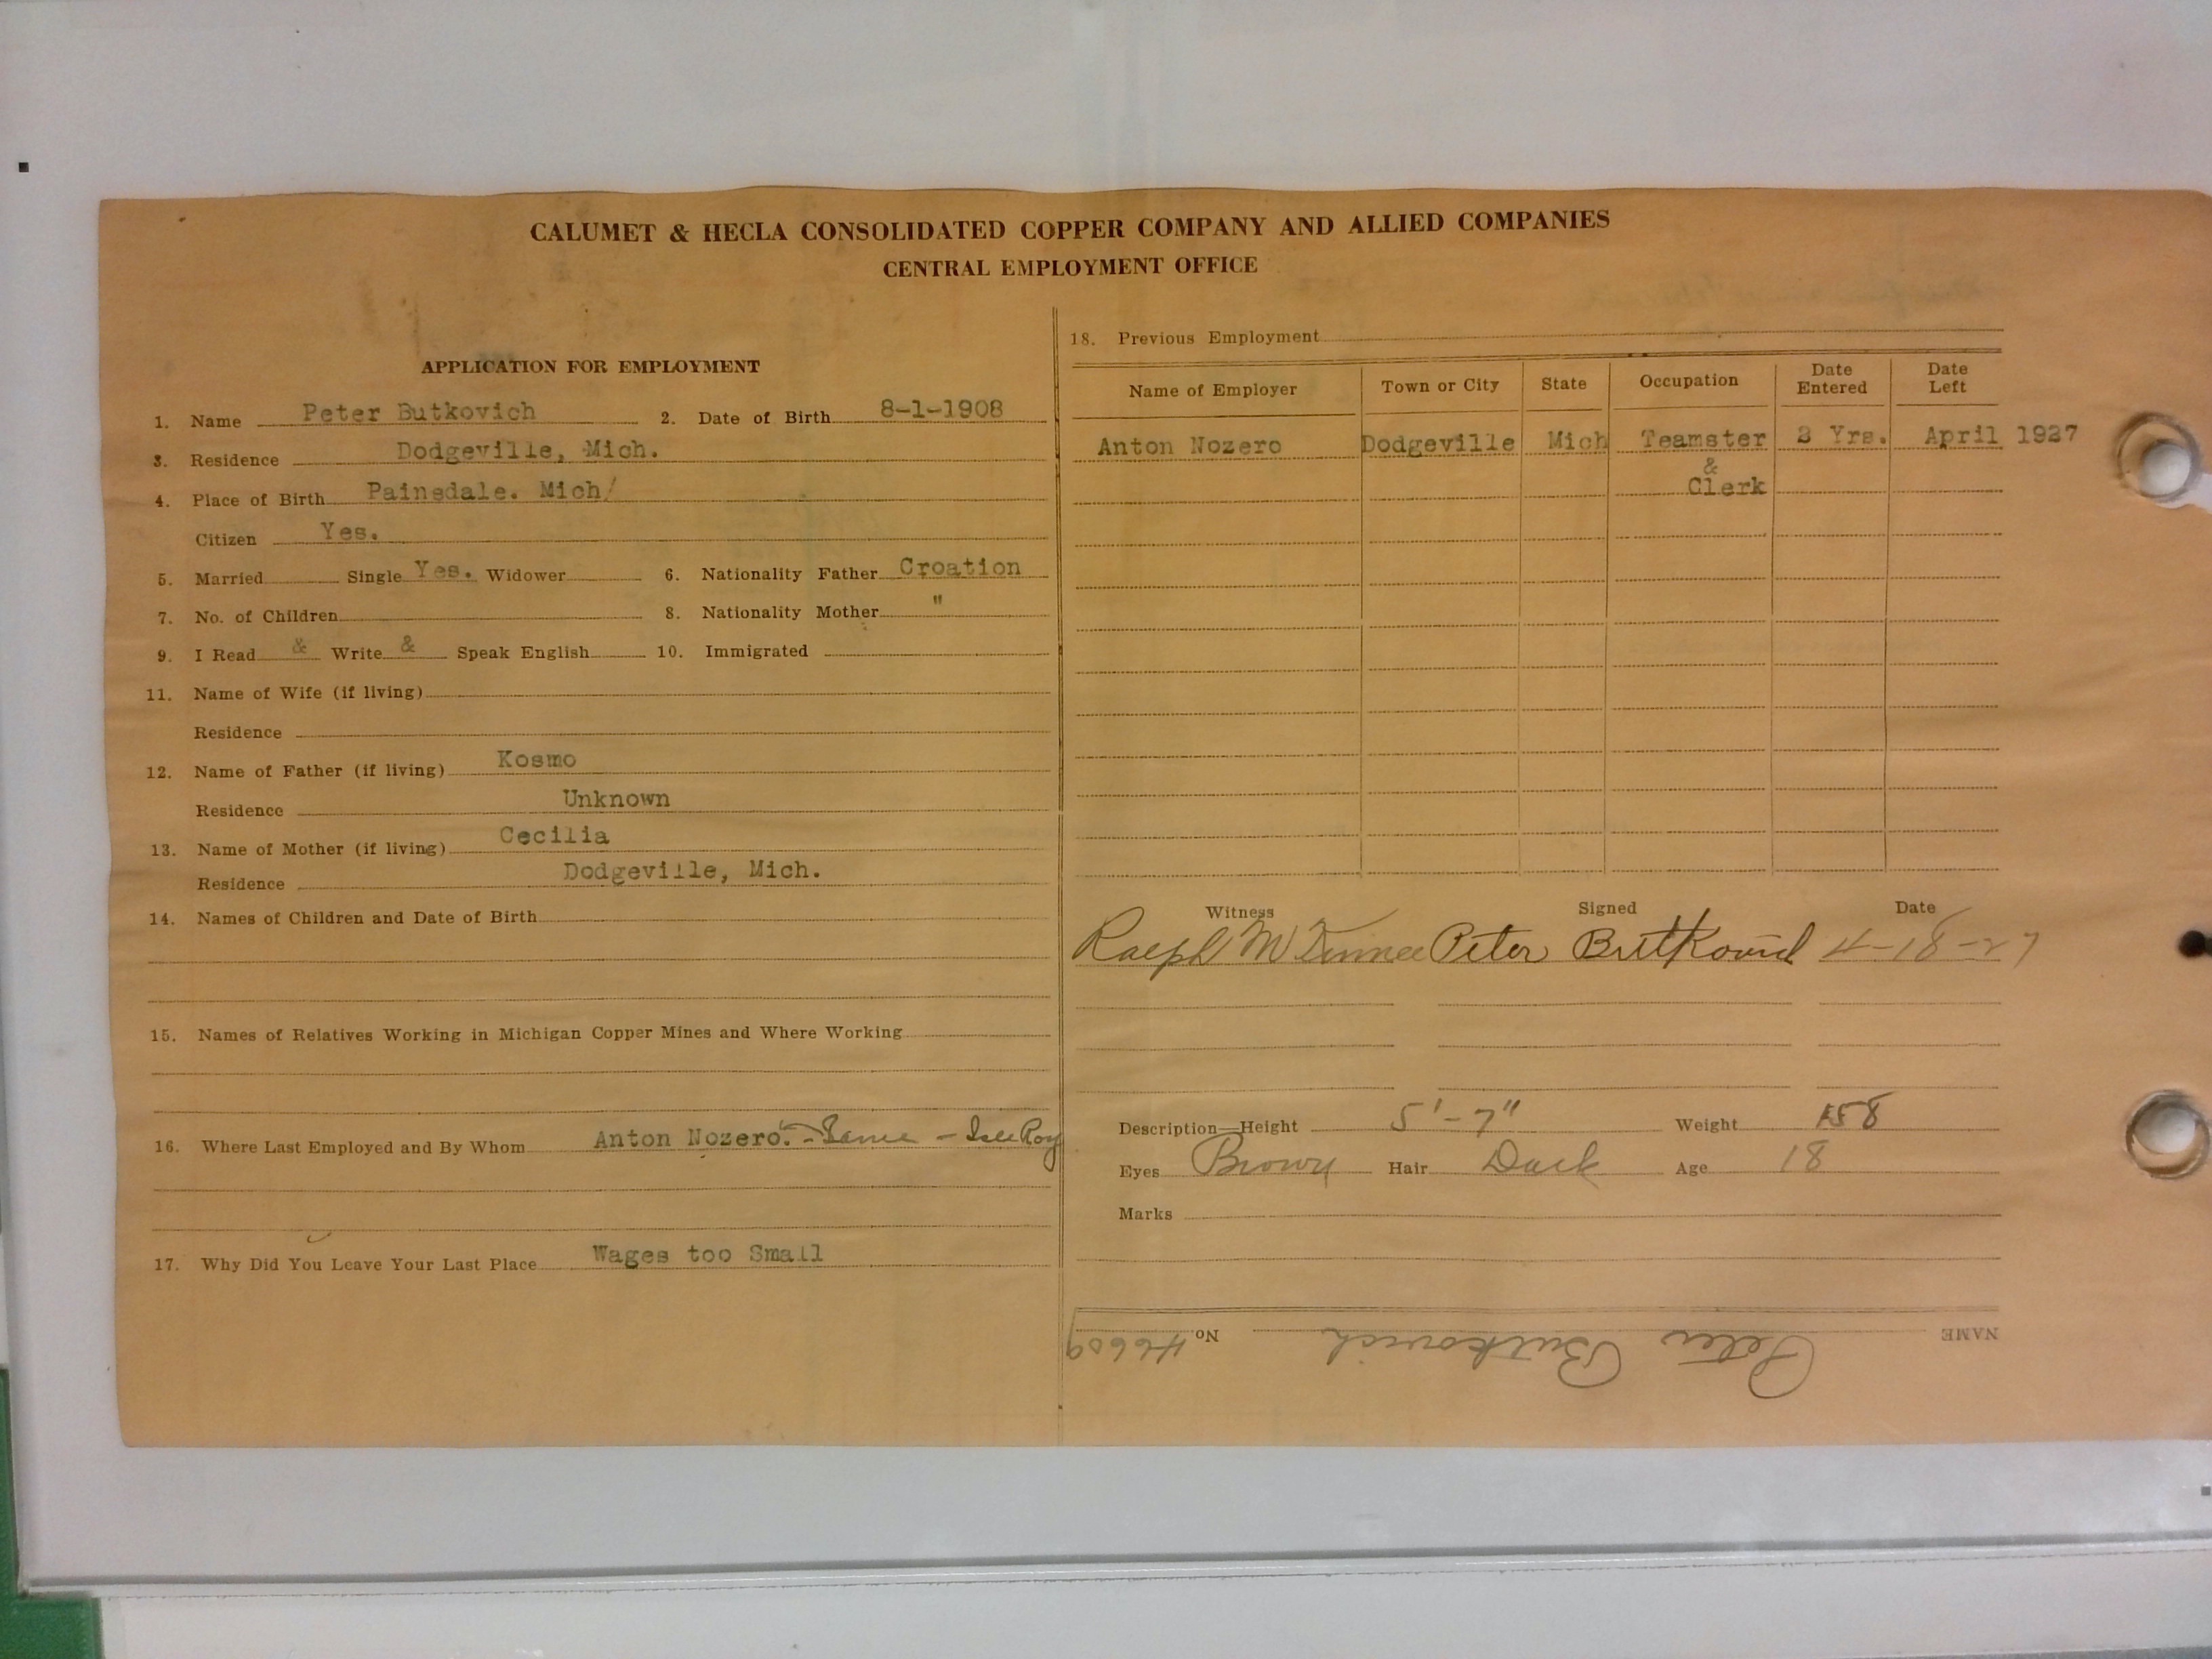 CALUMET & HECLA CONSOLIDATED COPPER COMPANY AND ALLIED COMPANIES
CENTRAL EMPLOYMENT OFFICE
APPLICATION FOR EMPLOYMENT
1. Name Peter Butkovich 2. Date of Birth 8-1-1908
3. Residence Dodgeville, Mich.
4. Place of Birth Painsdale. Mich/
Citizen Yes.
5. Married Single Yes. Widower 6. Nationality Father Croation
7. No. of Children 8. Nationality Mother "
9. I Read & Write & Speak English 10. Immigrated
11. Name of Wife (if living)
Residence
12. Name of Father (if living) Kosmo
Residence Unknown
13. Name of Mother (if living) Cecilia
Residence Dodgeville, Mich.
14. Names of Children and Date of Birth
15. Names of Relatives Working in Michigan Copper Mines and Where Working
16. Where Last Employed and By Whom Anton Nozero. - Isle Roy
17. Why Did You Leave Your Last Place Wages too Small
18. Previous Employment
Name of Employer Town or City State Occupation Date Entered Date Left
Anton Nozero Dodgeville Mich Teamster Yrs. April 1927
&
Clerk
Witness Signed Date
Ralph Peter Butkovich 4-18-27
Description—Height 5'-7" Weight 158
Eyes Brown Hair Dark Age 18
Marks
NAME Peter Butkovich No. 46609